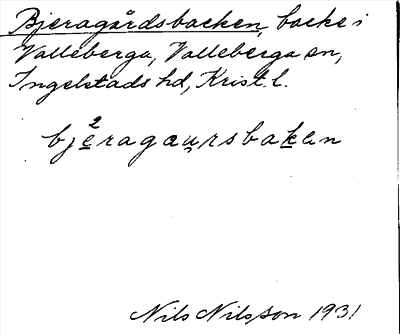 Bjeragårdsbacken, backe i
Valleberga, Valleberga sn,
Ingelstads hd, Krist. l.
bjèragaursbaken
Nils Nilsson 1931